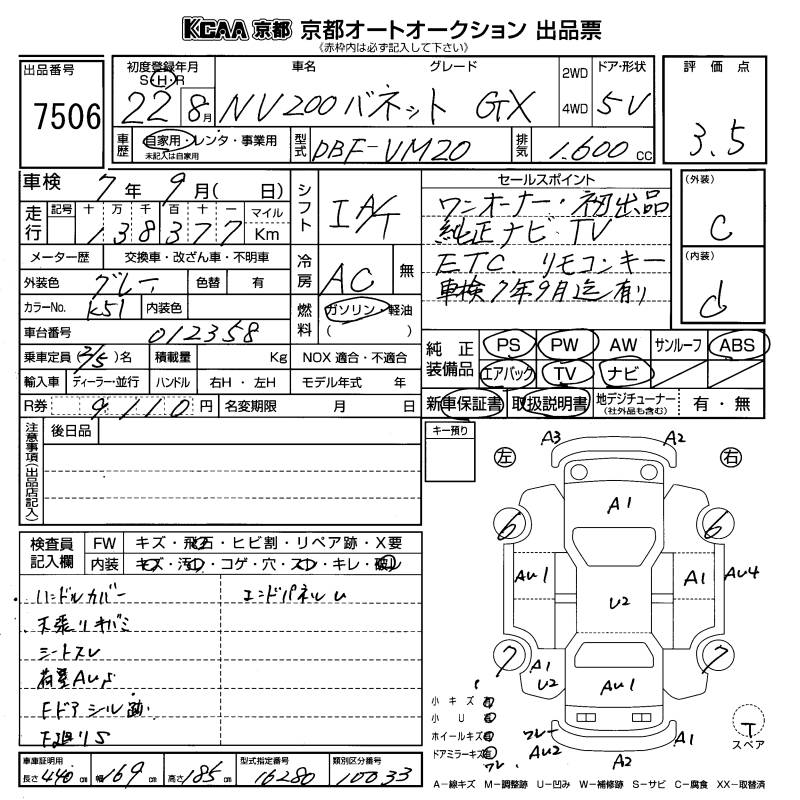 KCAA 京都 京都オートオークション 出品票
《赤枠内は必ず記入して下さい》
出品番号
7506
初度登録年月
S・H・R
22 8月
車名
グレード
NV200 バネット GX
2WD
4WD
ドア・形状
5V
評価点
3.5
車歴
自家用・レンタ・事業用
未記入は自家用
型式
DBF-VM20
排気
1.600 cc
車検 7年 9月( 日)
走行
記号 十 万 千 百 十 一 マイル
138377 Km
シフト
I A/T
セールスポイント
ワンオーナー・初出品
純正ナビ TV
ETC リモコンキー
車検7年9月迄有り
(外装)
C
(内装)
d
メーター歴 交換車・改ざん車・不明車
冷房
AC 無
外装色 グレー 色替 有
カラーNo. K51 内装色
燃料
ガソリン・軽油
( )
車台番号 012358
乗車定員(2/5)名 積載量 Kg NOX 適合・不適合
輸入車 ディーラー・並行 ハンドル 右H・左H モデル年式 年
R券 9110円 名変期限 月 日
純正装備品
PS PW AW サンルーフ ABS
エアバック TV ナビ
新車保証書 取扱説明書 地デジチューナー(社外品も含む) 有・無
注意事項(出品店記入)
後日品
キー預り
左 右
A3 A2
A1
6 6
AU1 A1 AU4
U2
7 7
A1
U2
AU1
A1
A2
検査員記入欄
FW キズ・飛石・ヒビ割・リペア跡・X要
内装 キズ・汚レ・コゲ・穴・スレ・キレ・破レ
ハンドルカバー
エンドパネルU
天張リキバミ
シートスレ
荷室AUS
Fドアシル跡
下廻りS
小キズ有
小U有
ホイールキズ有
ドアミラーキズ有
ワレ
AU2
ワレ
T
スペア
車庫証明用
長さ 440cm 幅 169cm 高さ 185cm
型式指定番号
16280
類別区分番号
10033
A－線キズ M－調整跡 U－凹み W－補修跡 S－サビ C－腐食 XX－取替済